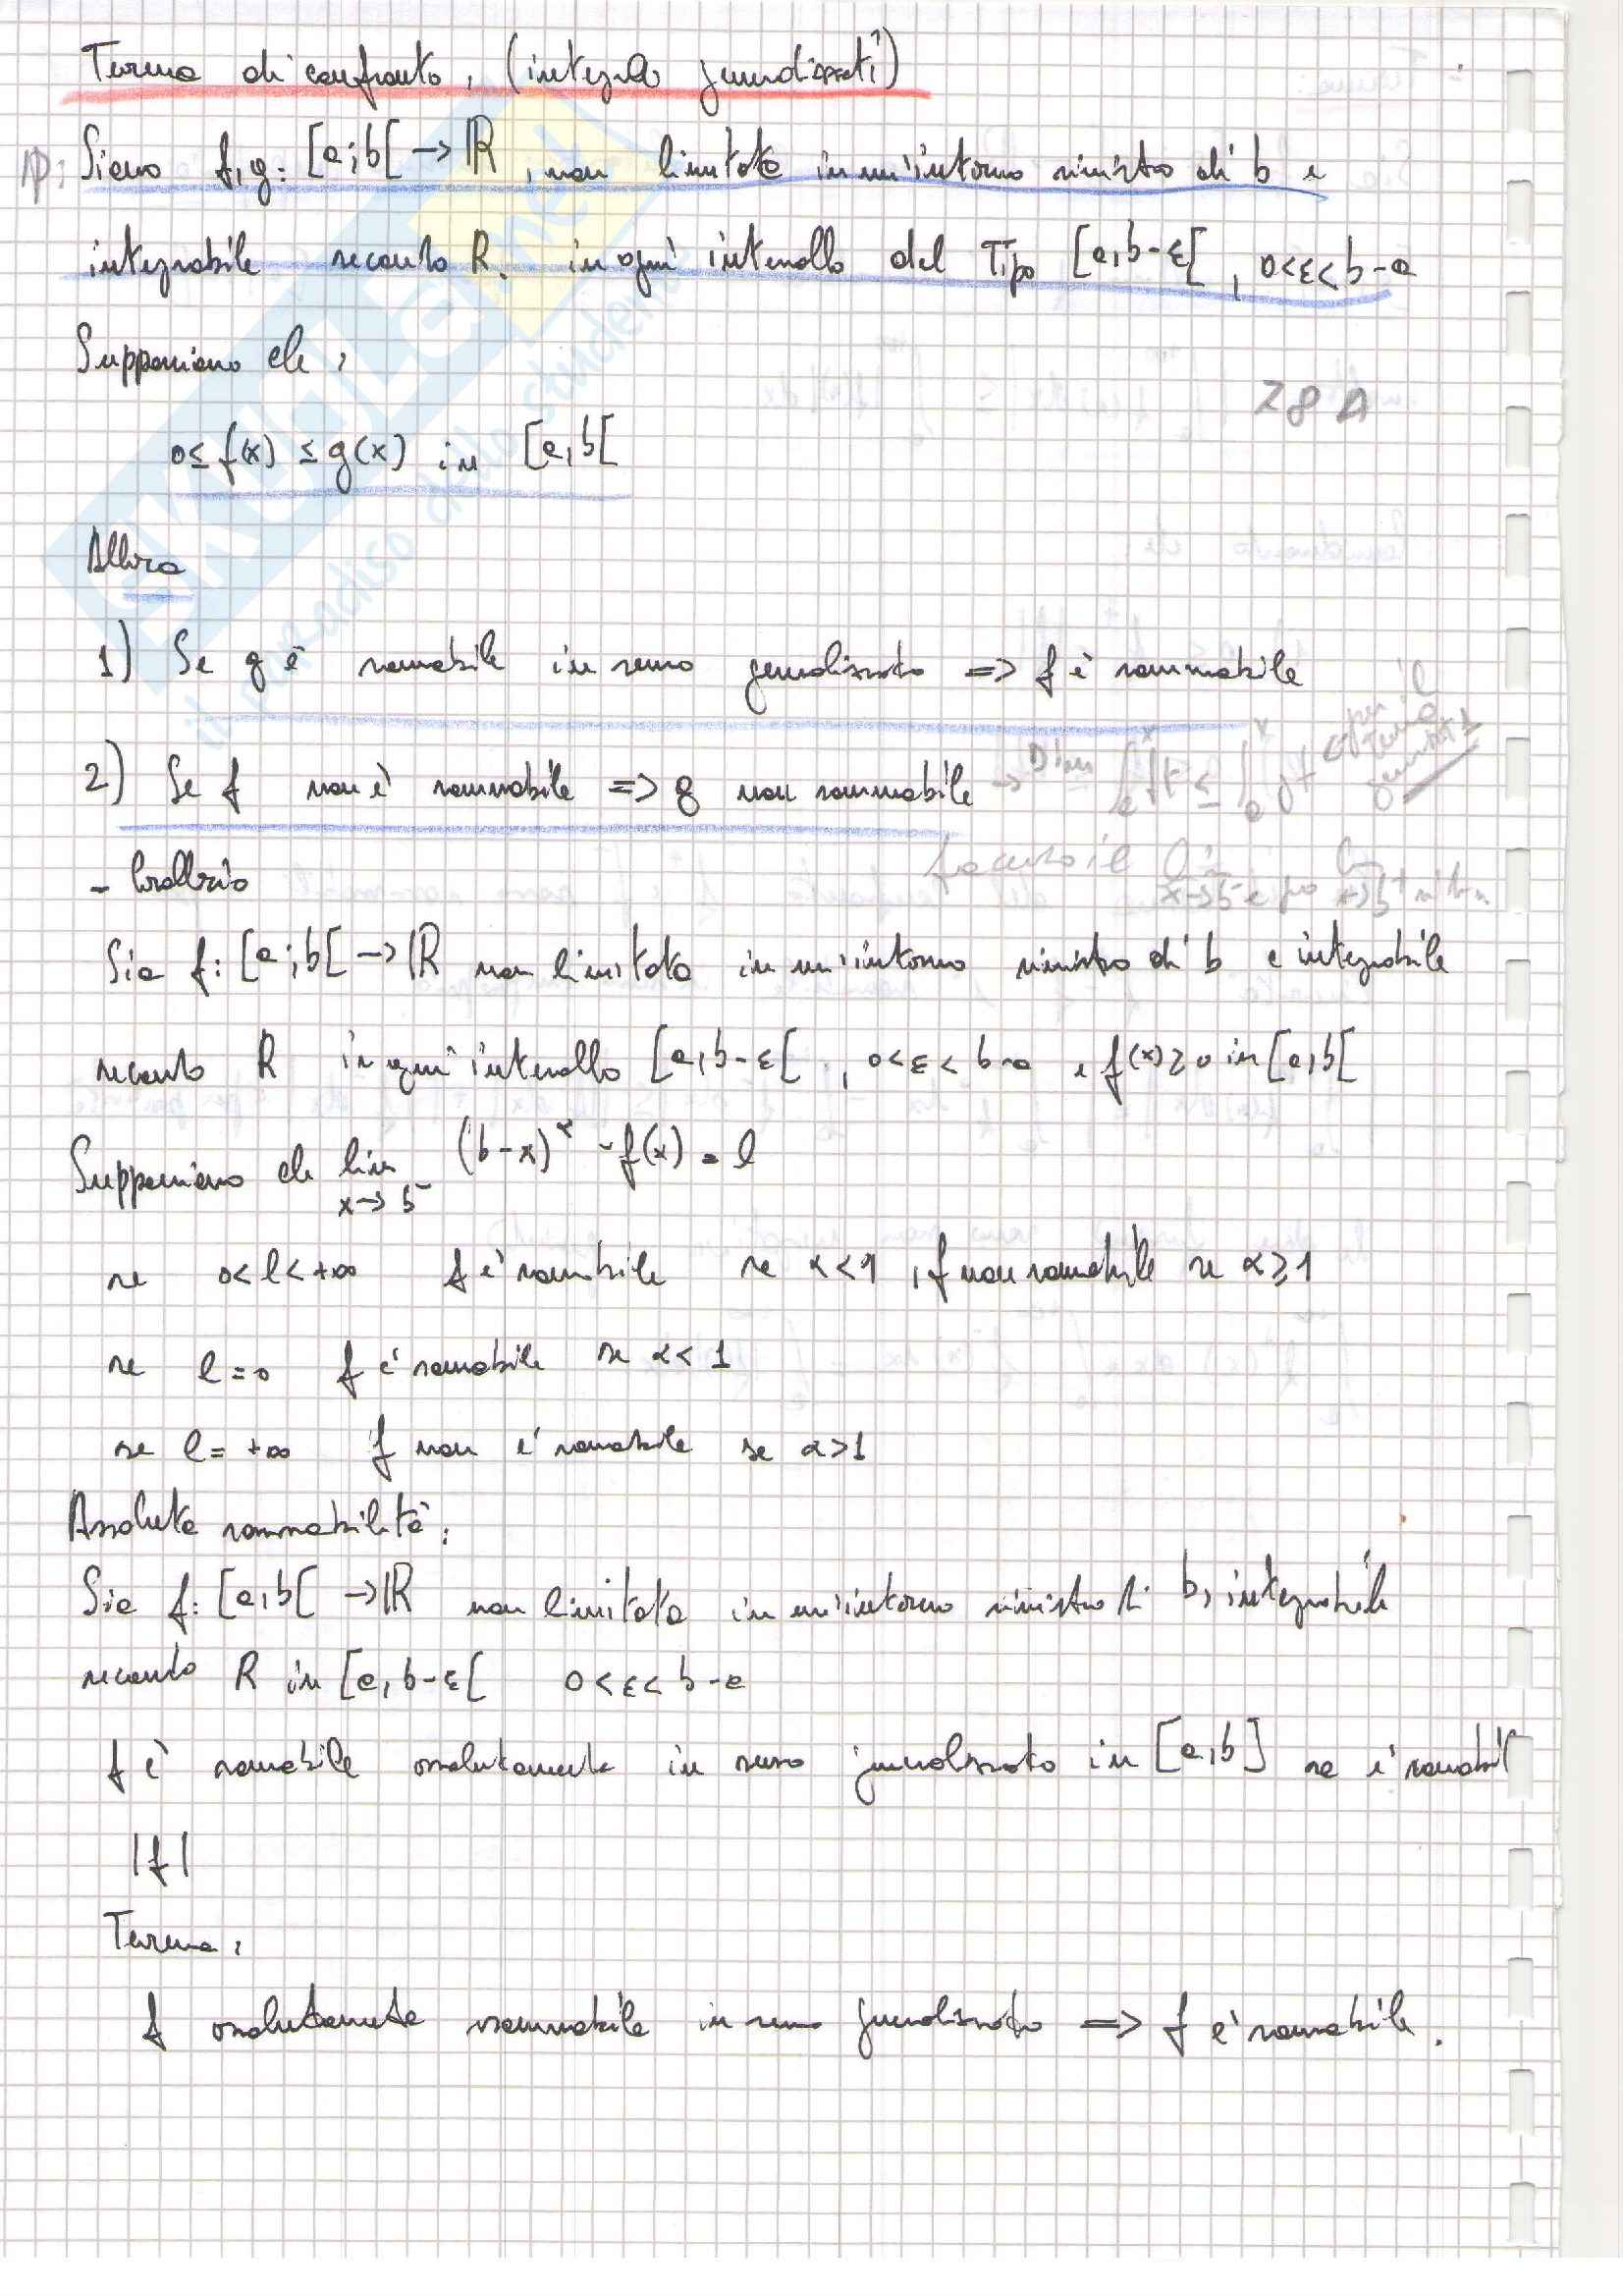 Teorema di confronto, (integrali generalizzati)
IP: Siano f,g: [a;b[ → ℝ, non limitate in un'intorno sinistro di b e
integrabile secondo R. in ogni intervallo del Tipo [a,b-ε[, 0<ε<b-a
Supponiamo che,
28 A
0≤ f(x) ≤ g(x) in [a,b[
Allora
1) Se g è sommabile in senso generalizzato => f è sommabile
2) Se f non è sommabile => g non sommabile → Dim ∫ₐˣ f ≤ ∫ₐˣ g per il
facendo il lim x→b⁻ e
- Corollario
Sia f: [a;b[ → ℝ non limitata in un'intorno sinistro di b e integrabile
secondo R in ogni intervallo [a,b-ε[, 0<ε< b-a e f(x)≥0 in [a,b[
Supponiamo che lim x→b⁻ (b-x)^α · f(x) = l
se 0<l<+∞ f è sommabile se α<1, f non sommabile se α≥1
se l=0 f è sommabile se α<1
se l=+∞ f non è sommabile se α>1
Assoluta sommabilità:
Sia f: [a,b[ → ℝ non limitata in un'intorno sinistro di b, integrabile
secondo R in [a,b-ε[ 0<ε<b-a
f è sommabile assolutamente in senso generalizzato in [a,b] se è sommabil
|f|
Teorema,
f assolutamente sommabile in senso generalizzato => f è sommabile.
AKUeb.net
il paradiso dello studente